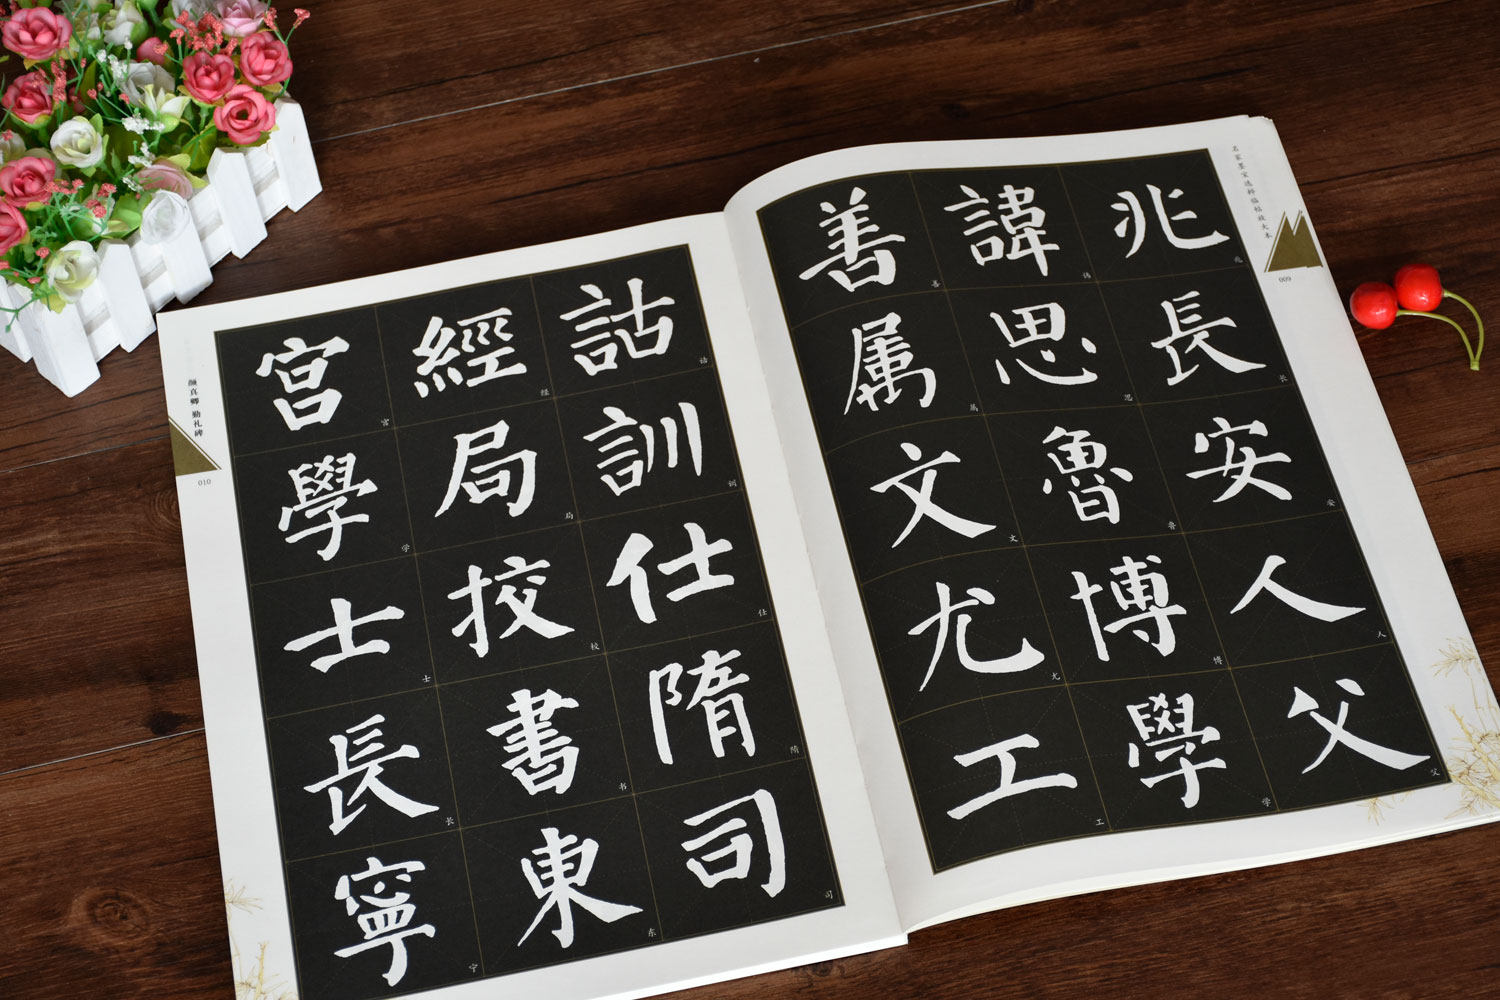 名家墨宝选粹临帖放大本
009
兆長安人父
兆长安人父
諱思魯博學
讳思鲁博学
善属文尤工
善属文尤工
詁訓仕隋司
诂训仕隋司
經局挍書東
经局校书东
宫學士長寧
宫学士长宁
颜真卿 勤礼碑
010